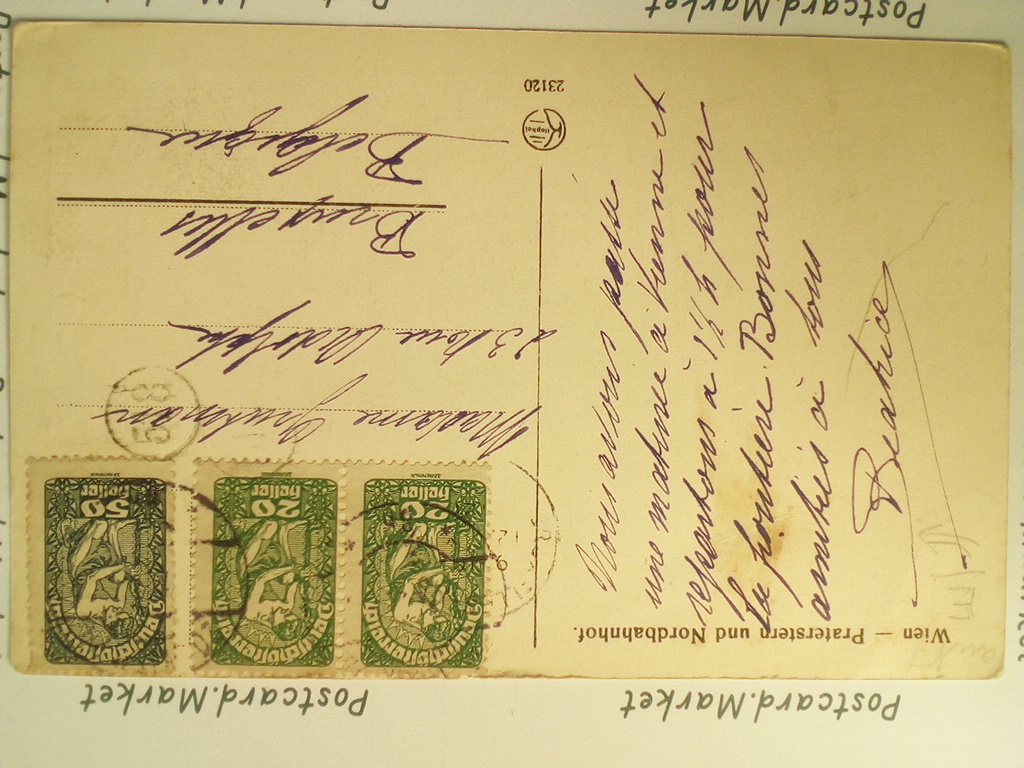 Postcard.Market
Postcard.Market
Wien — Praterstern und Nordbahnhof.
Nous avons passé
une matinée à Vienne et
repartons à 1½ h pour
la frontière. Bonnes
amitiés à tous
Beatrice
Kilophot
23120
50
Heller
20
Heller
20
Heller
Deutschösterreich
Deutschösterreich
Deutschösterreich
Madame
23 rue
Bruxelles
Belgique
Postcard.Market
Postcard.Market